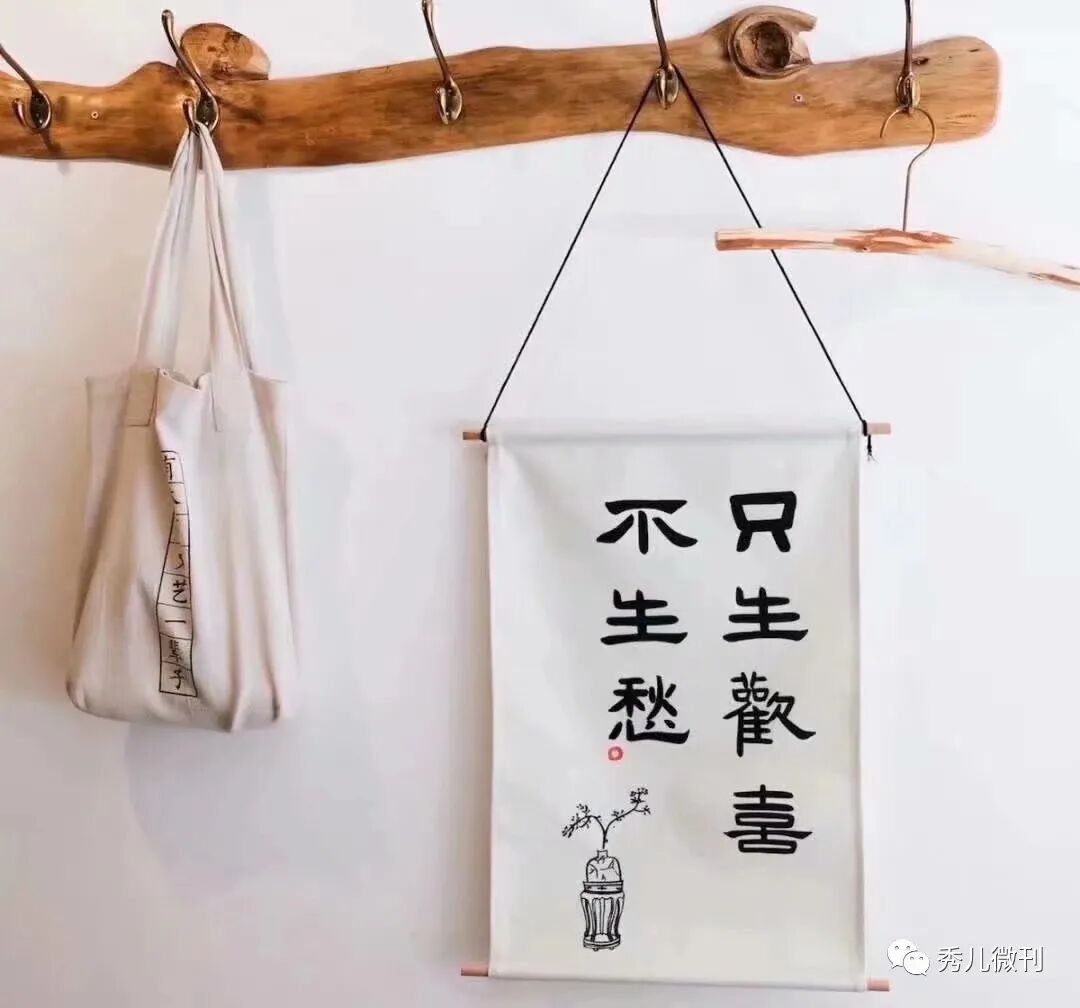 只生歡喜
不生愁
艺一辈子
秀儿微刊